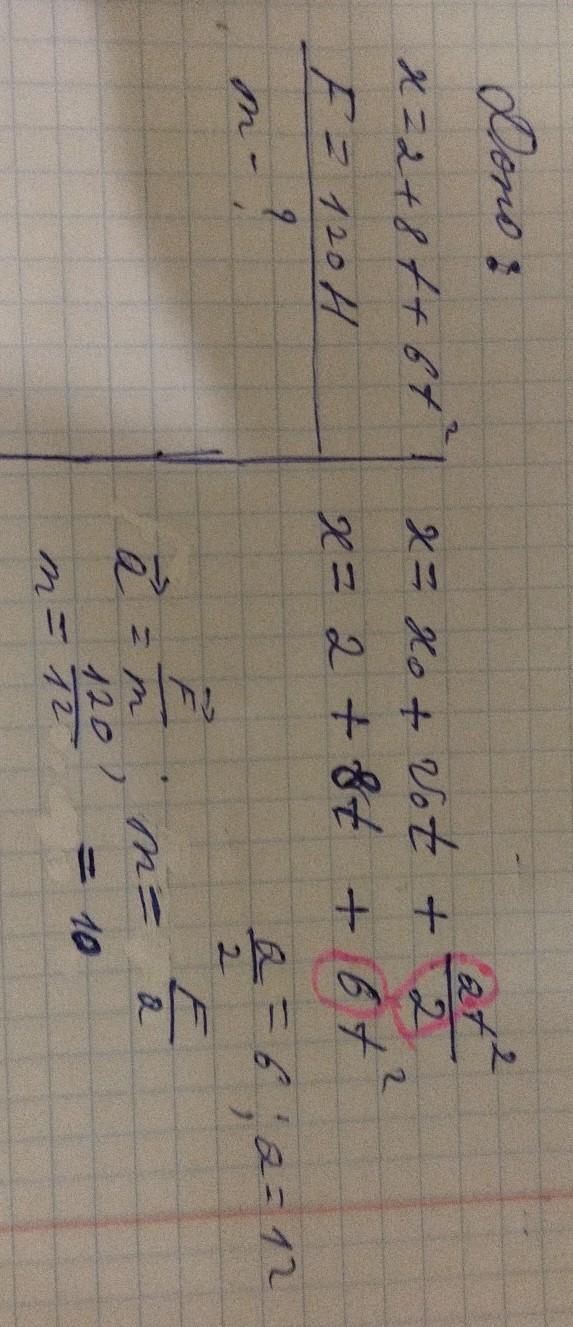 Дано:
x = 2 + 8t + 6t²
F = 120 Н
m - ?
x = x₀ + v₀t + at²/2
x = 2 + 8t + 6t²
a/2 = 6; a = 12
a⃗ = F⃗/m; m = F/a
m = 120/12, = 10